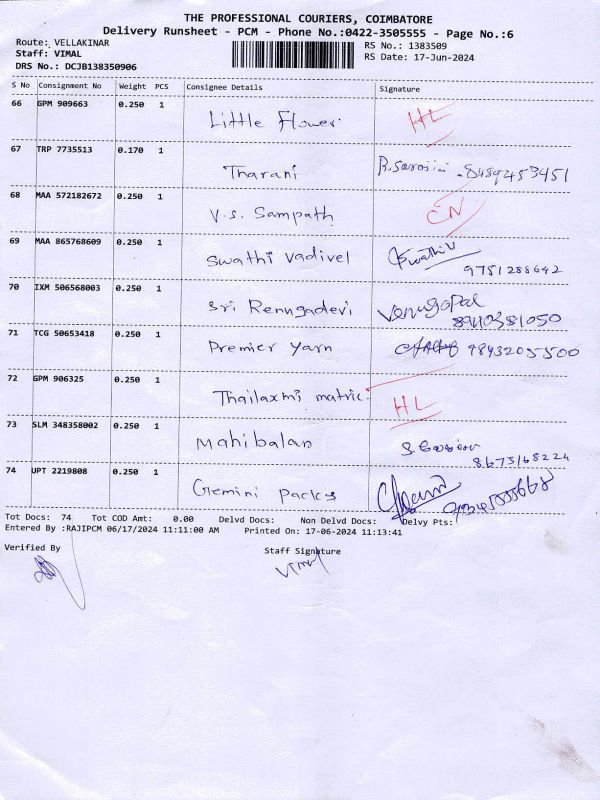 THE PROFESSIONAL COURIERS, COIMBATORE
Delivery Runsheet - PCM - Phone No.:0422-3505555 - Page No.:6
Route: VELLAKINAR RS No.: 1383509
Staff: VIMAL RS Date: 17-Jun-2024
DRS No.: DCJB138350906
S No Consignment No Weight PCS Consignee Details Signature
66 GPM 909663 0.250 1 Little Flower HL
67 TRP 7735513 0.170 1 Tharani 8489453451
68 MAA 572182672 0.250 1 V.S. Sampath CN
69 MAA 865768609 0.250 1 Swathi Vadivel Swathi V
9751288642
70 IXM 506568003 0.250 1 Sri Renugadevi Venugopal
8940381050
71 TCG 50653418 0.250 1 Premier Yarn 9843205500
72 GPM 906325 0.250 1 Thailaxmi matric. HL
73 SLM 348358002 0.250 1 Mahibalan
8675168224
74 UPT 2219808 0.250 1 Gemini Packs
Tot Docs: 74 Tot COD Amt: 0.00 Delvd Docs: Non Delvd Docs: Delvy Pts:
Entered By :RAJIPCM 06/17/2024 11:11:00 AM Printed On: 17-06-2024 11:13:41
Verified By Staff Signature
Vimal